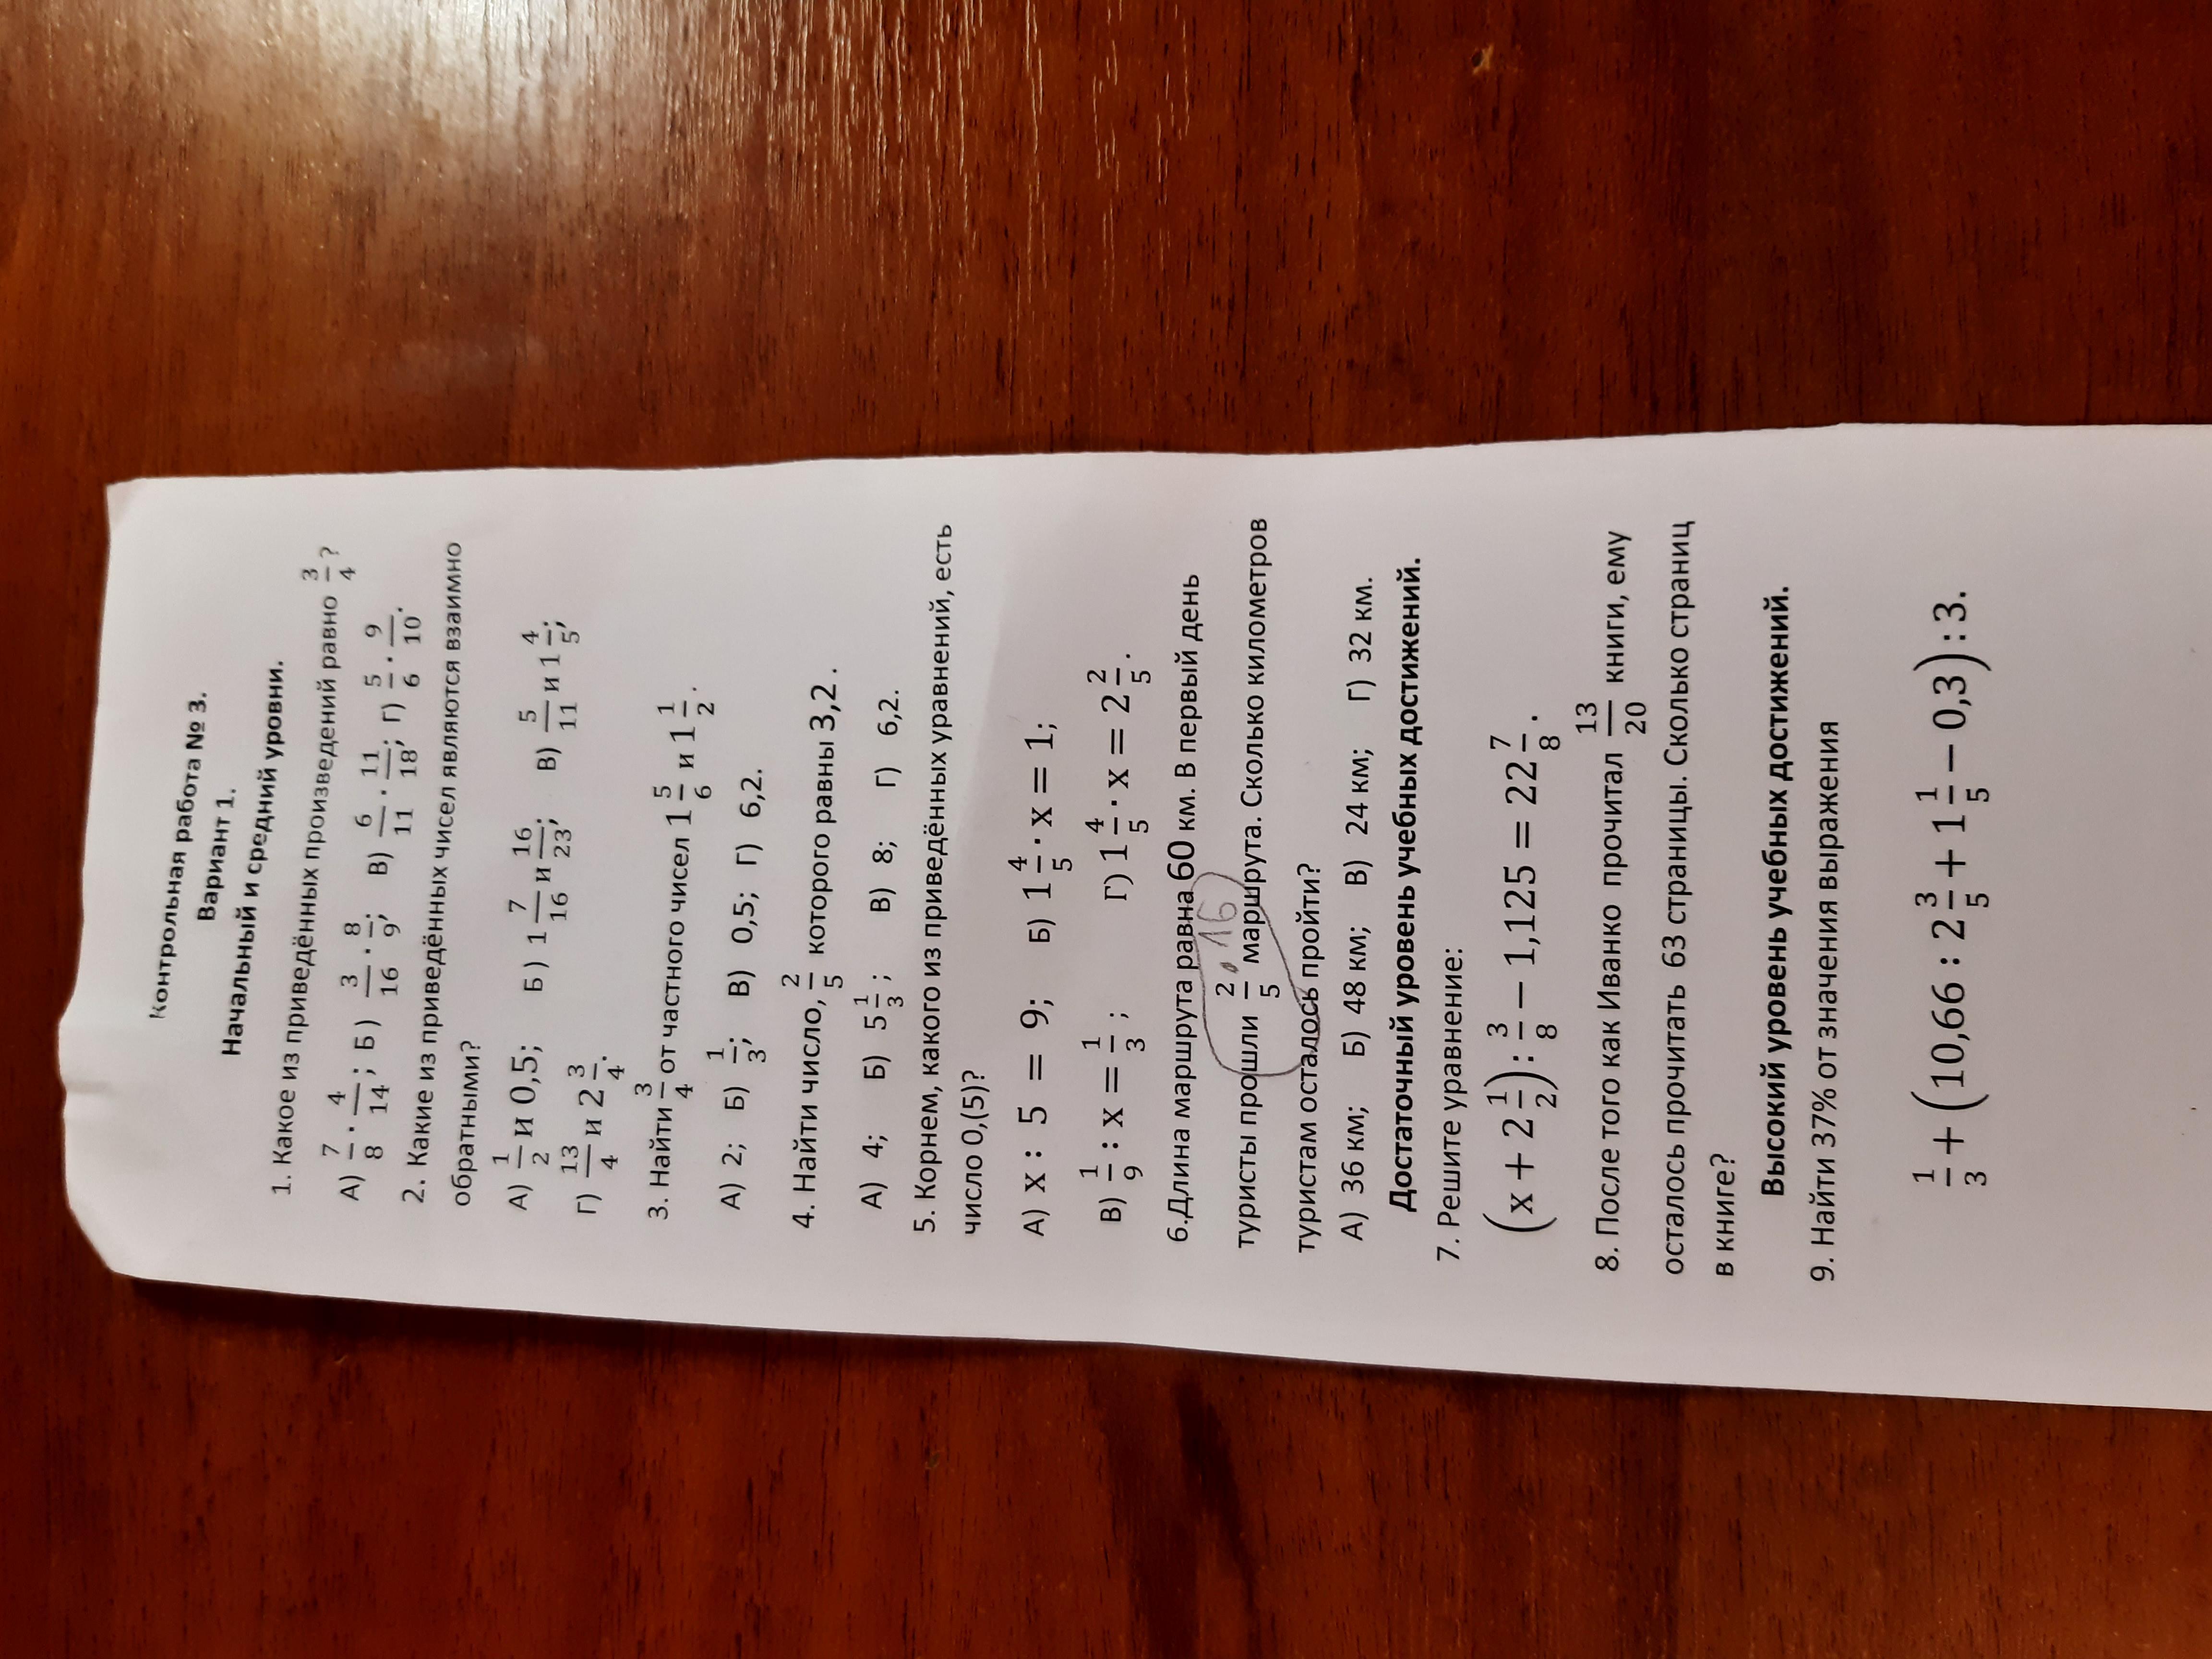 Контрольная работа № 3.
Вариант 1.
Начальный и средний уровни.
1. Какое из приведённых произведений равно 3/4?
А) 7/8 · 4/14; Б) 3/16 · 8/9; В) 6/11 · 11/18; Г) 5/6 · 9/10.
2. Какие из приведённых чисел являются взаимно
обратными?
А) 1/2 и 0,5; Б) 1 7/16 и 16/23; В) 5/11 и 1 4/5;
Г) 13/4 и 2 3/4.
3. Найти 3/4 от частного чисел 1 5/6 и 1 1/2.
А) 2; Б) 1/3; В) 0,5; Г) 6,2.
4. Найти число, 2/5 которого равны 3,2.
А) 4; Б) 5 1/3; В) 8; Г) 6,2.
5. Корнем, какого из приведённых уравнений, есть
число 0,(5)?
А) x : 5 = 9; Б) 1 4/5 · x = 1;
В) 1/9 : x = 1/3; Г) 1 4/5 · x = 2 2/5.
6.Длина маршрута равна 60 км. В первый день
16
туристы прошли 2/5 маршрута. Сколько километров
туристам осталось пройти?
А) 36 км; Б) 48 км; В) 24 км; Г) 32 км.
Достаточный уровень учебных достижений.
7. Решите уравнение:
(x + 2 1/2) : 3/8 − 1,125 = 22 7/8.
8. После того как Иванко прочитал 13/20 книги, ему
осталось прочитать 63 страницы. Сколько страниц
в книге?
Высокий уровень учебных достижений.
9. Найти 37% от значения выражения
1/3 + (10,66 : 2 3/5 + 1 1/5 − 0,3) : 3.